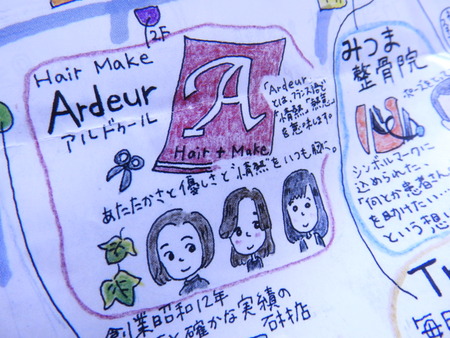 2F
Hair Make
Ardeur
アルドゥール
A
Hair + Make
「Ardeur」
とは、フランス語で
"情熱""熱意"
を意味します。
あたたかさと優しさと"情熱"をいつも胸に。
創業昭和12年
確かな実績の
石材店
みつま
整骨院
シンボルマークに
込められた、
「何とか患者さん
を助けたい…」
という想い
Th
毎日